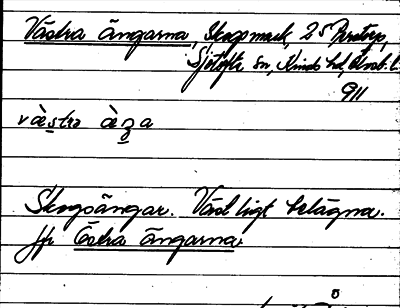 Västra ängarna, Skogsmark, 25 Perstorp,
Sjötofta sn, Kinds hd, Älvsb. l.
911
västrə àꞑa
Skogsängar. Västligt belägna.
Jfr Östra ängarna.